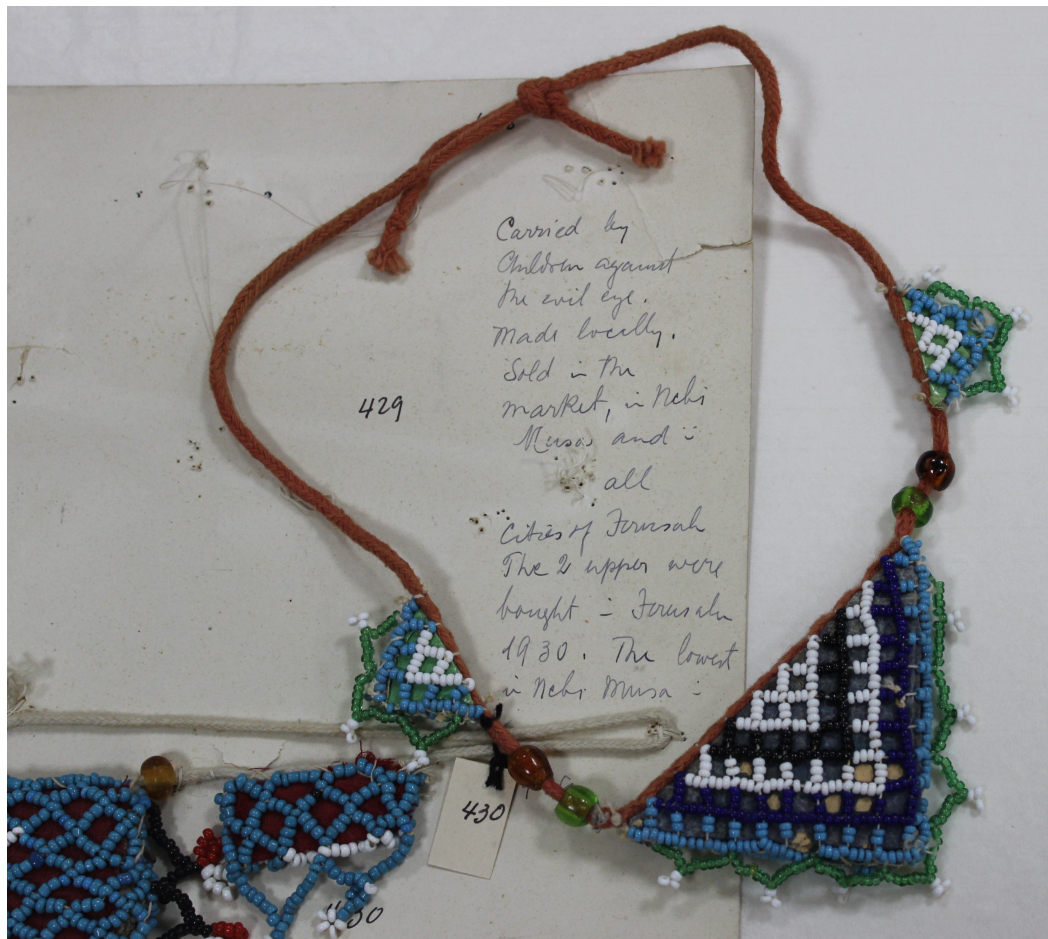 429
Carried by
Children against
the evil eye.
Made locally.
Sold in the
market, in Nebi
Musa and in
all
Cities of
The 2 upper were
bought in
1930. The lowest
in Nebi Musa
430